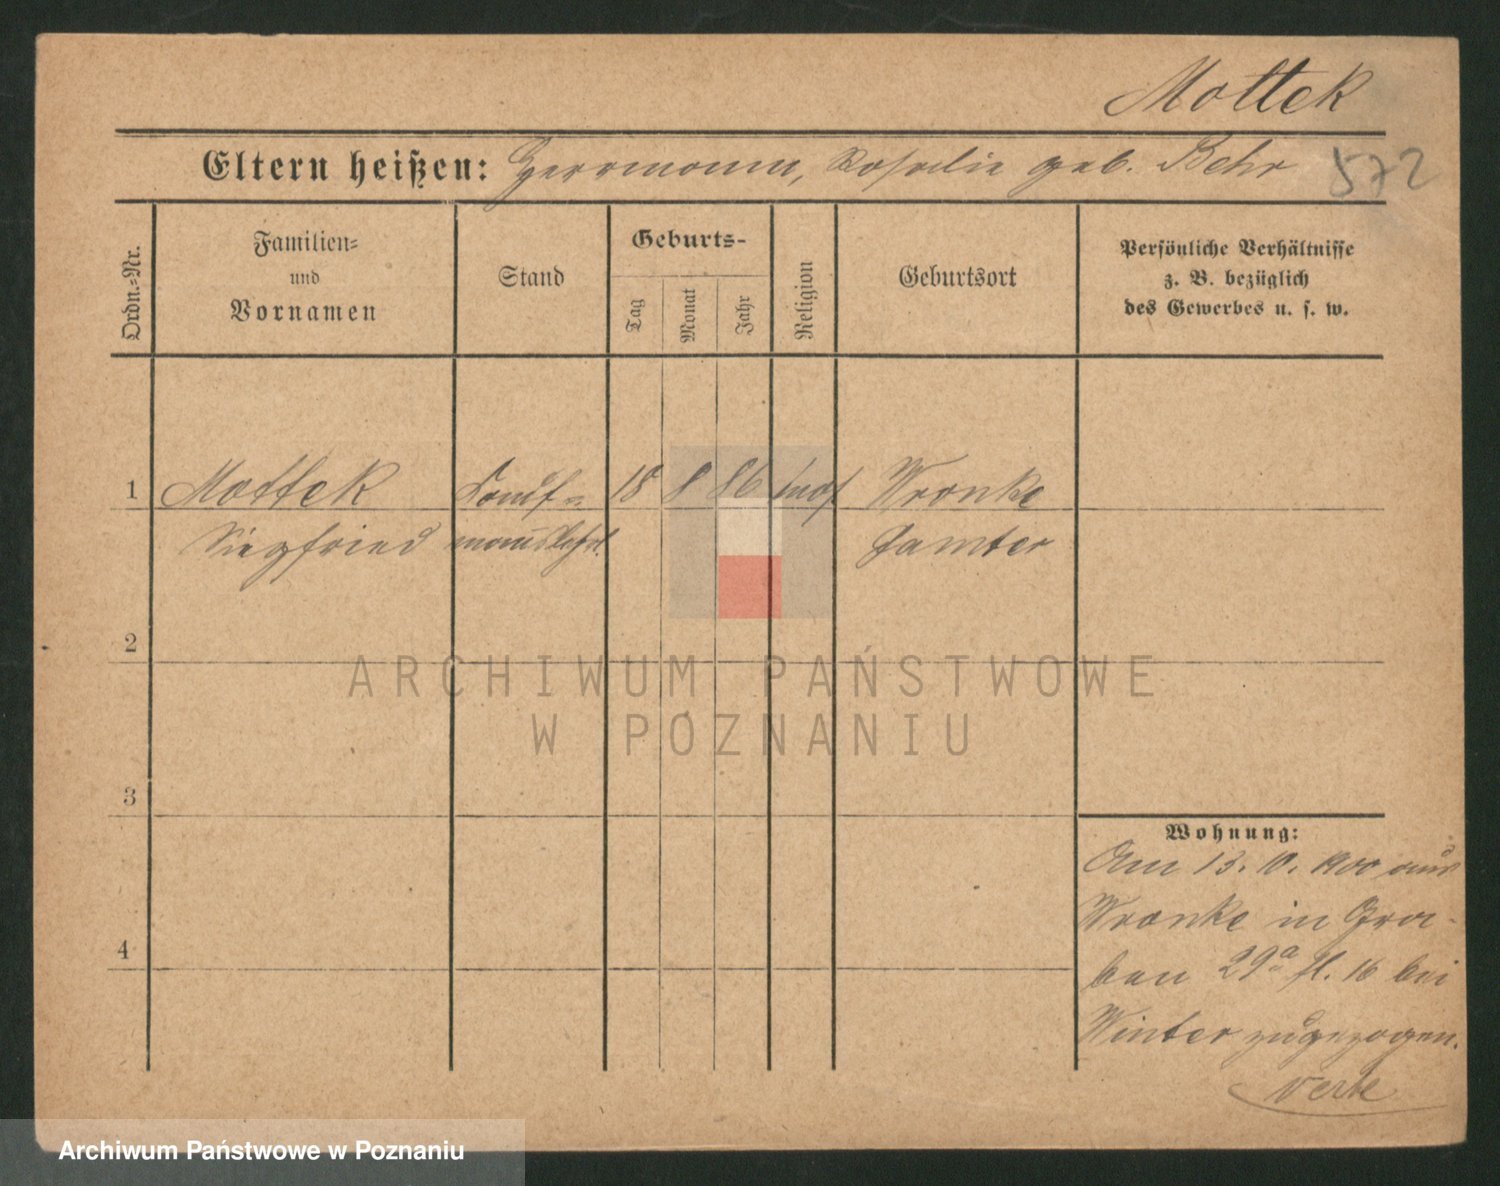 Mottek
Eltern heißen: Herrmann, Rosalie geb. Behr 572
Ordn.-Nr.
Familien-
und
Vornamen
Stand
Geburts-
Tag
Monat
Jahr
Religion
Geburtsort
Persönliche Verhältnisse
z. B. bezüglich
des Gewerbes u. s. w.
1 Mottek Kauf= 18 8 86 mos Wronke
Siegfried mannslehrl. Samter
2
ARCHIWUM PAŃSTWOWE
W POZNANIU
3
Wohnung:
Am 13. 10. 1900 aus
Wronke in Gra-
4
ben 29a fl. 16 bei
Winter zugezogen.
verte
Archiwum Państwowe w Poznaniu